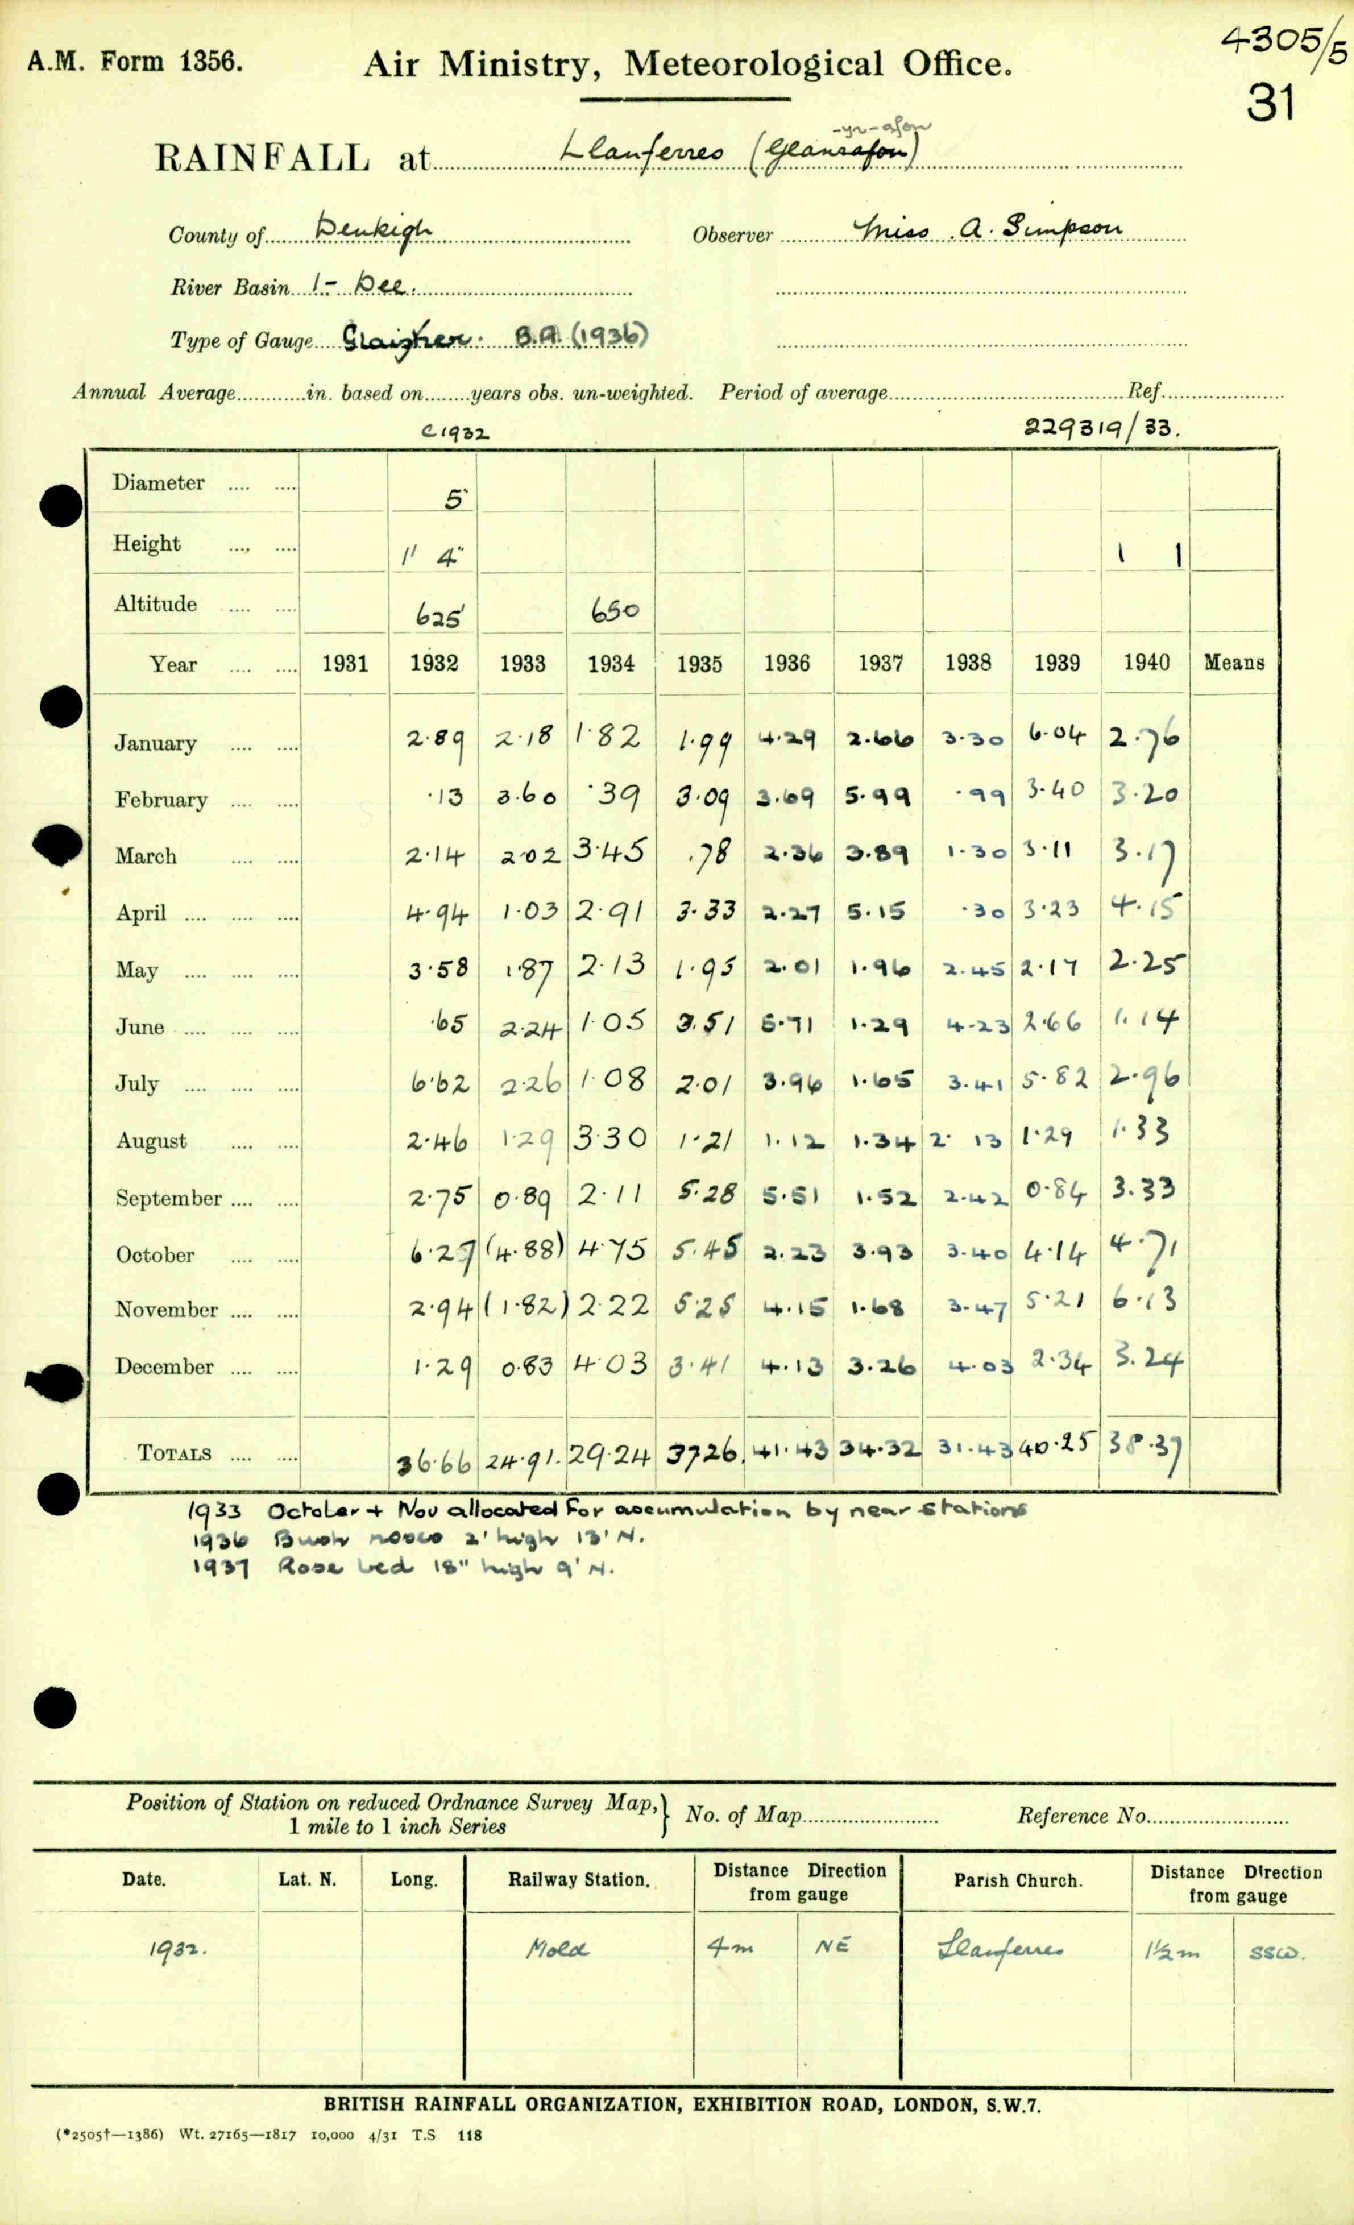 4305/5
A.M. Form 1356. Air Ministry, Meteorological Office.
31
-yr-afon
RAINFALL at Llanferres (Glanrafon)
County of Denbigh Observer Miss A. Simpson
River Basin 1- Dee.
Type of Gauge Glaisher. B.A. (1936)
Annual Average in. based on years obs. un-weighted. Period of average Ref.
C1932 229319/33.
Diameter 5"
Height 1' 4" 1 1
Altitude 625 650
Year 1931 1932 1933 1934 1935 1936 1937 1938 1939 1940 Means
January 2.89 2.18 1.82 1.99 4.29 2.66 3.30 6.04 2.76
February .13 3.60 .39 3.09 3.69 5.99 .99 3.40 3.20
March 2.14 2.02 3.45 .78 2.36 3.89 1.30 3.11 3.17
April 4.94 1.03 2.91 3.33 2.27 5.15 .30 3.23 4.15
May 3.58 1.87 2.13 1.95 2.01 1.96 2.45 2.17 2.25
June .65 2.24 1.05 3.51 5.71 1.29 4.23 2.66 1.14
July 6.62 2.26 1.08 2.01 3.96 1.65 3.41 5.82 2.96
August 2.46 1.29 3.30 1.21 1.12 1.34 2.13 1.29 1.33
September 2.75 0.89 2.11 5.28 5.51 1.52 2.42 0.84 3.33
October 6.27 (4.88) 4.75 5.45 2.23 3.93 3.40 4.14 4.71
November 2.94 (1.82) 2.22 5.25 4.15 1.68 3.47 5.21 6.13
December 1.29 0.83 4.03 3.41 4.13 3.26 4.03 2.34 3.24
TOTALS 36.66 24.91. 29.24 37.26. 41.43 34.32 31.43 40.25 38.37
1933 October + Nov allocated for accumulation by near stations
1936 Bush roses 2' high 13' N.
1937 Rose bed 18" high 9' N.
Position of Station on reduced Ordnance Survey Map, } No. of Map Reference No.
1 mile to 1 inch Series
Date. Lat. N. Long. Railway Station. Distance Direction from gauge Parish Church. Distance Direction from gauge
1932. Mold 4m NE Llanferres 1½m SSW.
BRITISH RAINFALL ORGANIZATION, EXHIBITION ROAD, LONDON, S.W.7.
(*2505†—1386) Wt. 27165—1817 10,000 4/31 T.S 118